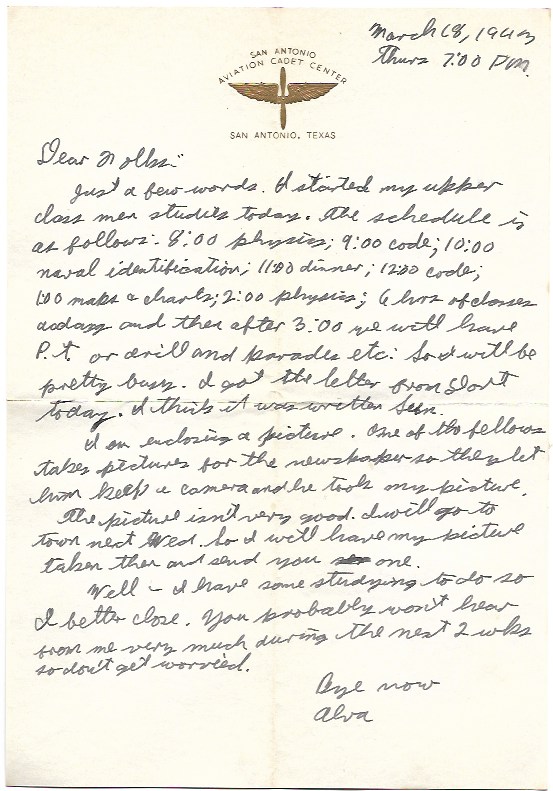 March 18, 1943
Thurs 7:00 PM.
SAN ANTONIO
AVIATION CADET CENTER
SAN ANTONIO, TEXAS
Dear Folks:
Just a few words. I started my upper
class men studies today. The schedule is
as follows: 8:00 physics; 9:00 code; 10:00
naval identification; 11:00 dinner; 12:00 code;
1:00 maps & charts; 2:00 physics; 6 hrs of classes
a day and then after 3:00 we will have
P.t. or drill and parades etc. So I will be
pretty busy. I got the letter from
today. I think it was written Sun.
I am enclosing a picture. One of the fellows
takes pictures for the newspaper so they let
him keep a camera and he took my picture.
The picture isn't very good. I will go to
town next Wed. So I will have my picture
taken then and send you one.
Well - I have some studying to do so
I better close. You probably won't hear
from me very much during the next 2 wks
so don't get worried.
Bye now
Alva